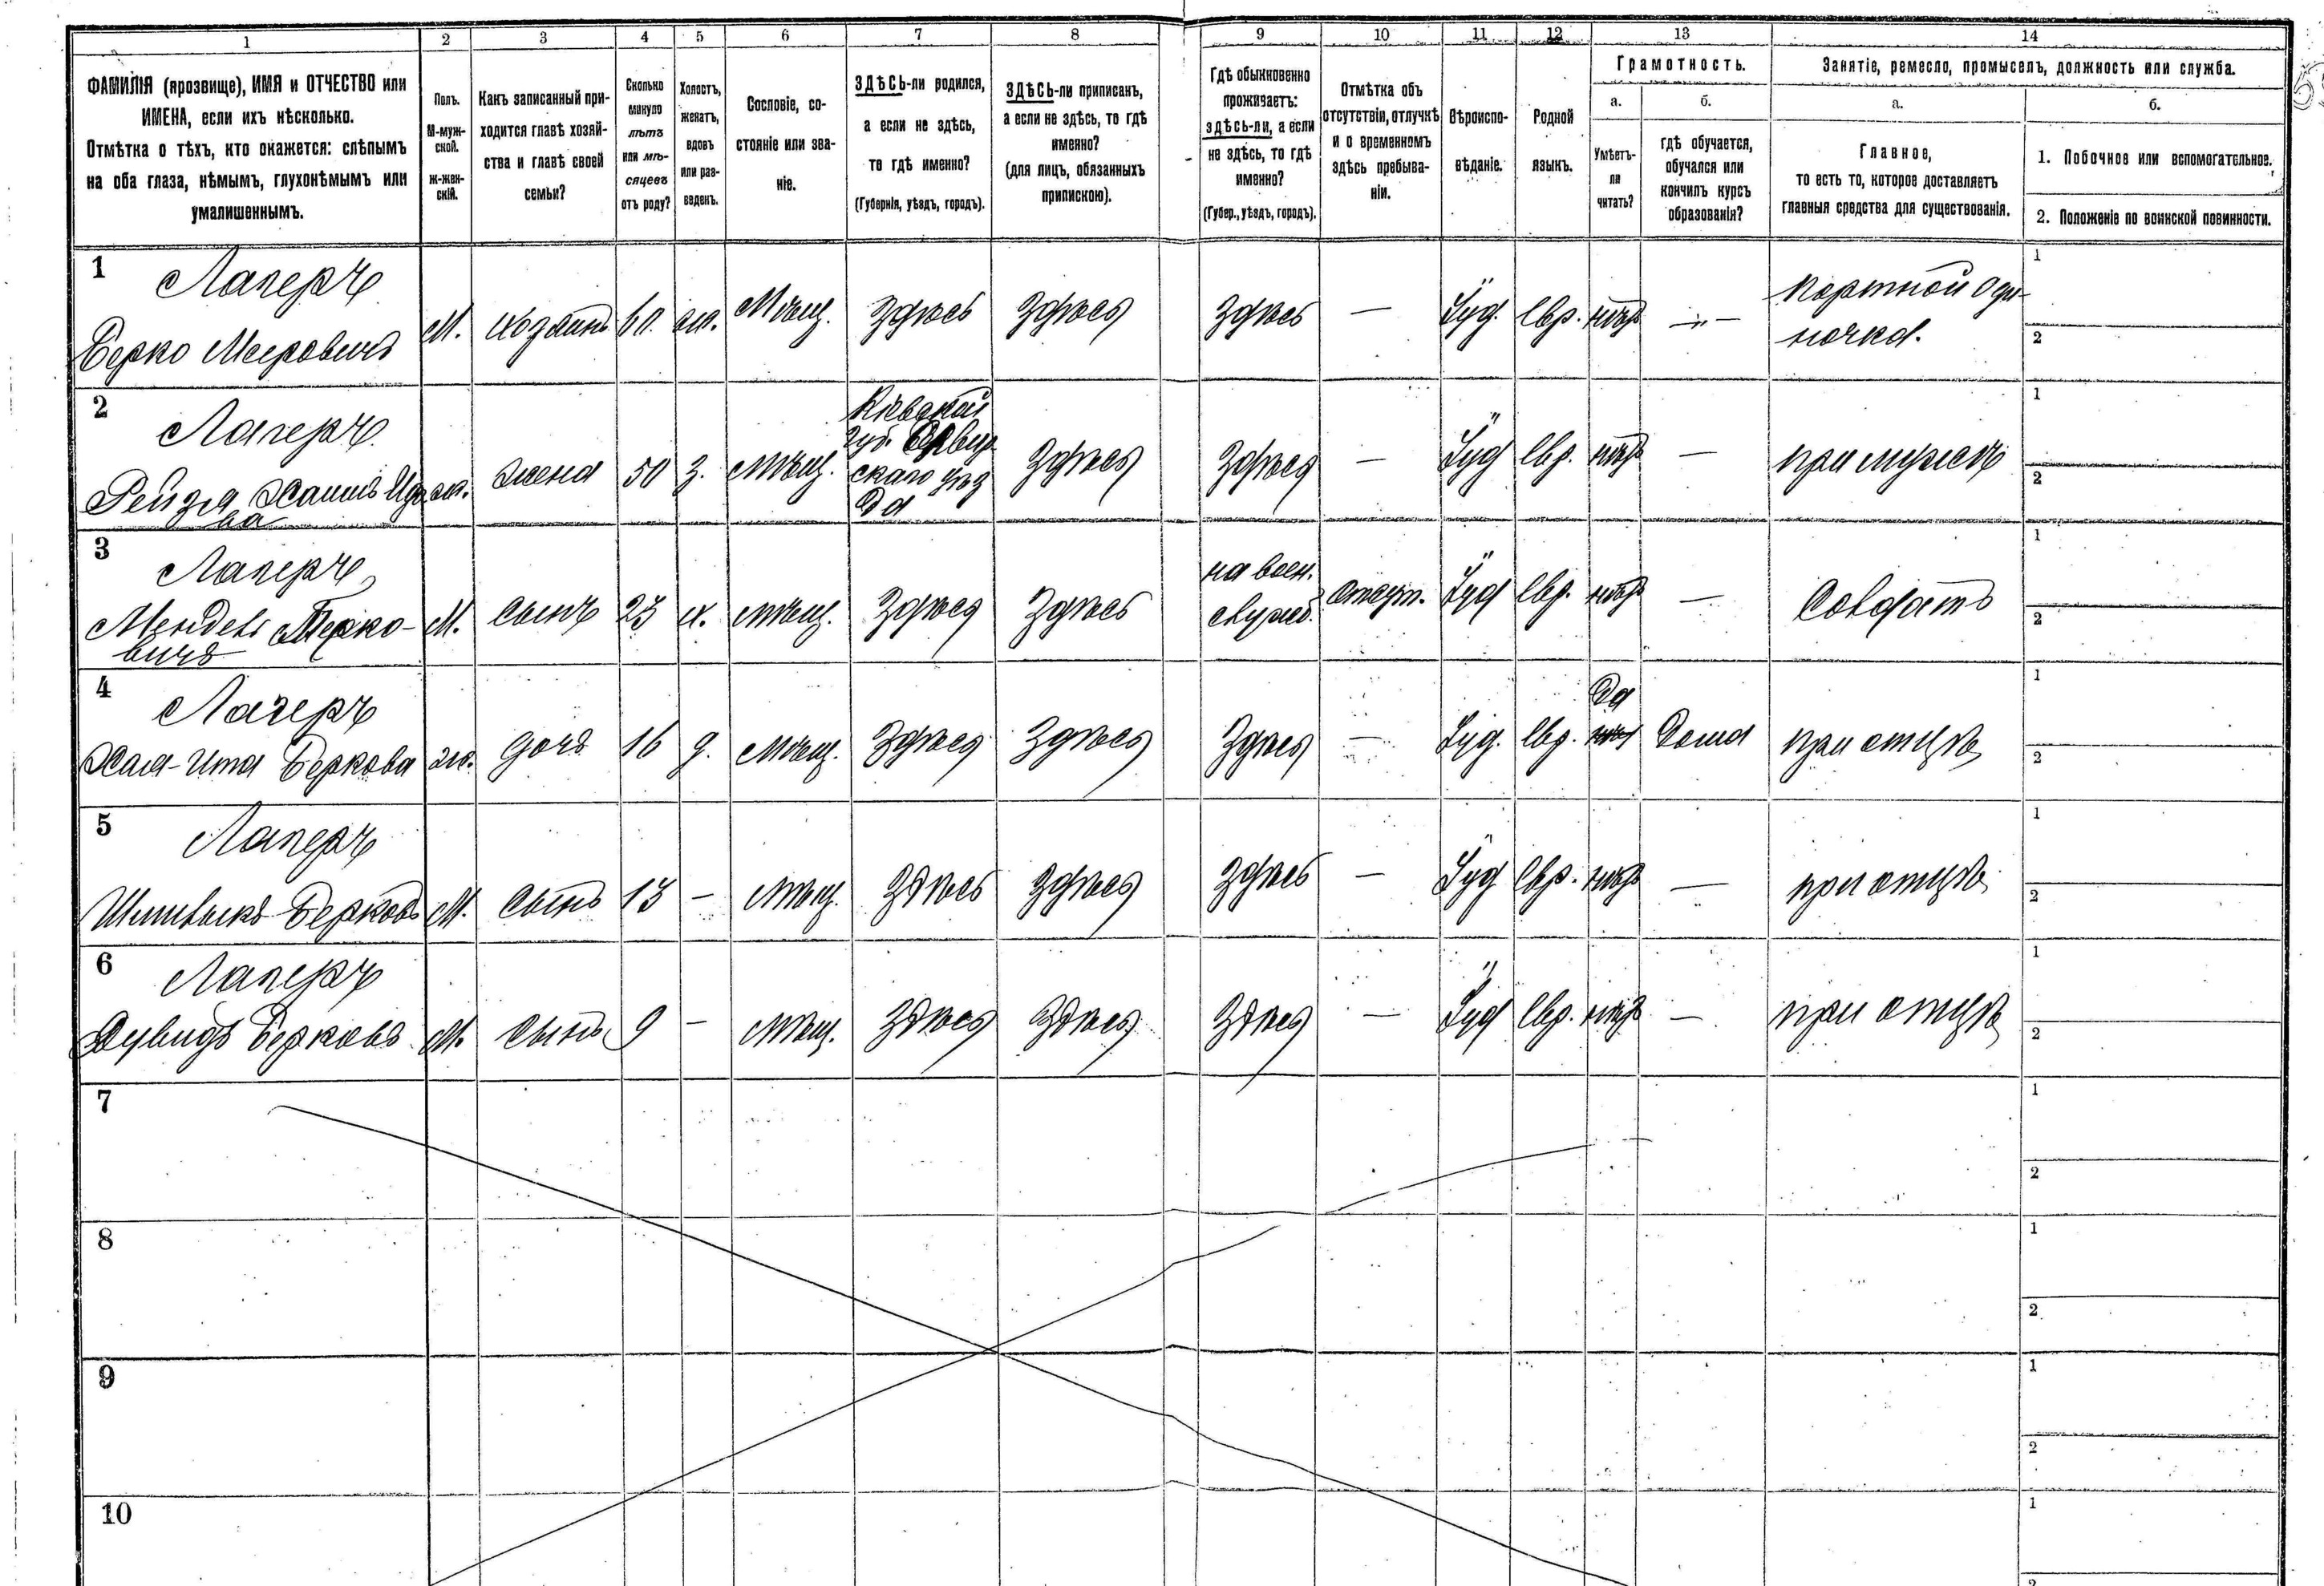 1 2 3 4 5 6 7 8 9 10 11 12 13 14
ФАМИЛІЯ (прозвище), ИМЯ и ОТЧЕСТВО или
ИМЕНА, если ихъ нѣсколько.
Отмѣтка о тѣхъ, кто окажется: слѣпымъ
на оба глаза, нѣмымъ, глухонѣмымъ или
умалишеннымъ.
Полъ.
М-муж-
ской.
Ж-жен-
скій.
Какъ записанный при-
ходится главѣ хозяй-
ства и главѣ своей
семьи?
Сколько
минуло
лѣтъ
или мѣ-
сяцевъ
отъ роду?
Холостъ,
женатъ,
вдовъ
или раз-
веденъ.
Сословіе, со-
стояніе или зва-
ніе.
ЗДѢСЬ-ли родился,
а если не здѣсь,
то гдѣ именно?
(Губернія, уѣздъ, городъ).
ЗДѢСЬ-ли приписанъ,
а если не здѣсь, то гдѣ
именно?
(для лицъ, обязанныхъ
припискою).
Гдѣ обыкновенно
проживаетъ:
здѣсь-ли, а если
не здѣсь, то гдѣ
именно?
(Губер., уѣздъ, городъ).
Отмѣтка объ
отсутствіи, отлучкѣ
и о временномъ
здѣсь пребыва-
ніи.
Вѣроиспо-
вѣданіе.
Родной
языкъ.
Грамотность.
а.
Умѣетъ-
ли
читать?
б.
гдѣ обучается,
обучался или
кончилъ курсъ
образованія?
Занятіе, ремесло, промыселъ, должность или служба.
а.
Главное,
то есть то, которое доставляетъ
главныя средства для существованія.
б.
1. Побочное или вспомогательное.
2. Положеніе по воинской повинности.
1 Лагеръ
Берко Мееровичъ М. хозяинъ 60 ж. Мѣщ. Здѣсь Здѣсь Здѣсь — Іуд. Евр. нѣтъ —„— портной оди-
ночка.
1
2
2 Лагеръ
Рейзя ж. жена 50 З. мѣщ. Кіевской
губ.
скаго уѣз
да Здѣсь Здѣсь — Іуд Евр. нѣтъ — при мужѣ
1
2
3 Лагеръ
Мендель Берко-
вичъ М. сынъ 23 х. мѣщ. Здѣсь Здѣсь на воен.
служб. отсут. Іуд Евр. нѣтъ — Солдатъ
1
2
4 Лагеръ
Хая-Ита Беркова ж. дочь 16 д. мѣщ. Здѣсь Здѣсь Здѣсь — Іуд. Евр. Да
нѣтъ Дома при отцѣ
1
2
5 Лагеръ
Берковъ М. сынъ 13 — мѣщ. Здѣсь Здѣсь Здѣсь — Іуд Евр. нѣтъ — при отцѣ
1
2
6 Лагеръ
Дувидъ Берковъ М. сынъ 9 — мѣщ. Здѣсь Здѣсь Здѣсь — Іуд Евр. нѣтъ — при отцѣ
1
2
7
1
2
8
1
2
9
1
2
10
1
2